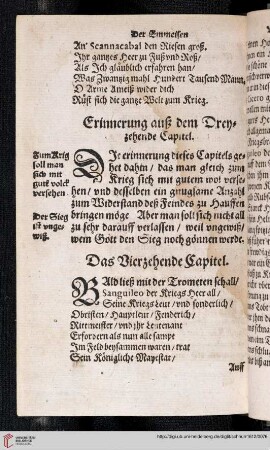 Der Emmeisen
An' Scannacabal den Riesen groß,
Ihr gantzes Heer zu Fuß vnd Roß/
Als Jch gläublich erfahren han/
Was Zwantzig mahl Hundert Tausend Mann,
O Arme Ameiß wider dich
Rüst sich die gantze Welt zum Krieg.
Erinnerung auß dem Drey-
zehende Capitel.
Zum Krig
soll man
sich mit
gunt volck
versehen
DIe erinnerung dieses Capitels ge-
het dahin/ das man gleich zum
Krieg sich mit gutem vol verse-
hen/ vnd desselben ein gnugsame Anzahl
zum Widerstand deß Feindes zu Hauffen
bringen möge Aber man soll sich nicht all
zu sehr darauff verlassen/ weil vngewiß/
wem Gott den Sieg noch gönnen werde.
Der Sieg
ist vnge-
wiß.
Das Vierzehende Capitel.
BAld ließ mit der Trometen schall/
Sanguileo der Kriegs Heer all/
Seine Kriegsleut/ vnd sonderlich/
Obristen/ Hauptleut/ Fenderich/
Rittmeister/ vnd jhr Leutenant
Erfordern als nun alle sampt
Im Feld beysammen waren/ trat
Sein Königliche Mayestat/
Auff